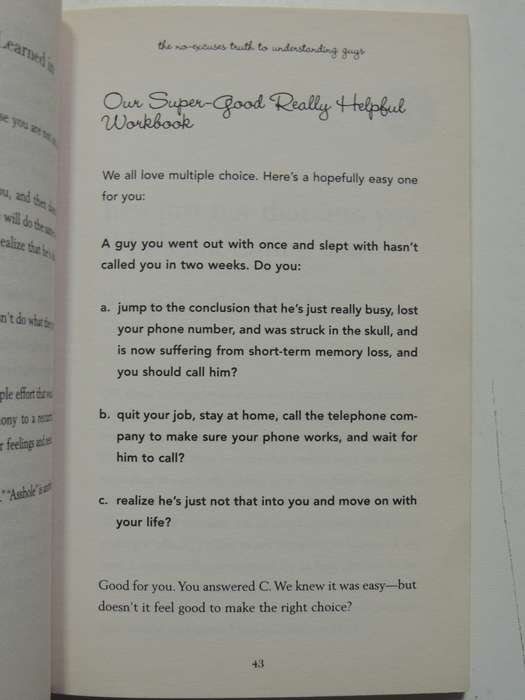 Learned in
se you are not
ou, and then
will do the same
realize that he's
n't do what they
ple effort that
ony to a
r feelings and
" "Asshole" is
the no-excuses truth to understanding guys
Our Super-Good Really Helpful
Workbook
We all love multiple choice. Here's a hopefully easy one
for you:
A guy you went out with once and slept with hasn't
called you in two weeks. Do you:
a. jump to the conclusion that he's just really busy, lost
your phone number, and was struck in the skull, and
is now suffering from short-term memory loss, and
you should call him?
b. quit your job, stay at home, call the telephone com-
pany to make sure your phone works, and wait for
him to call?
c. realize he's just not that into you and move on with
your life?
Good for you. You answered C. We knew it was easy—but
doesn't it feel good to make the right choice?
43